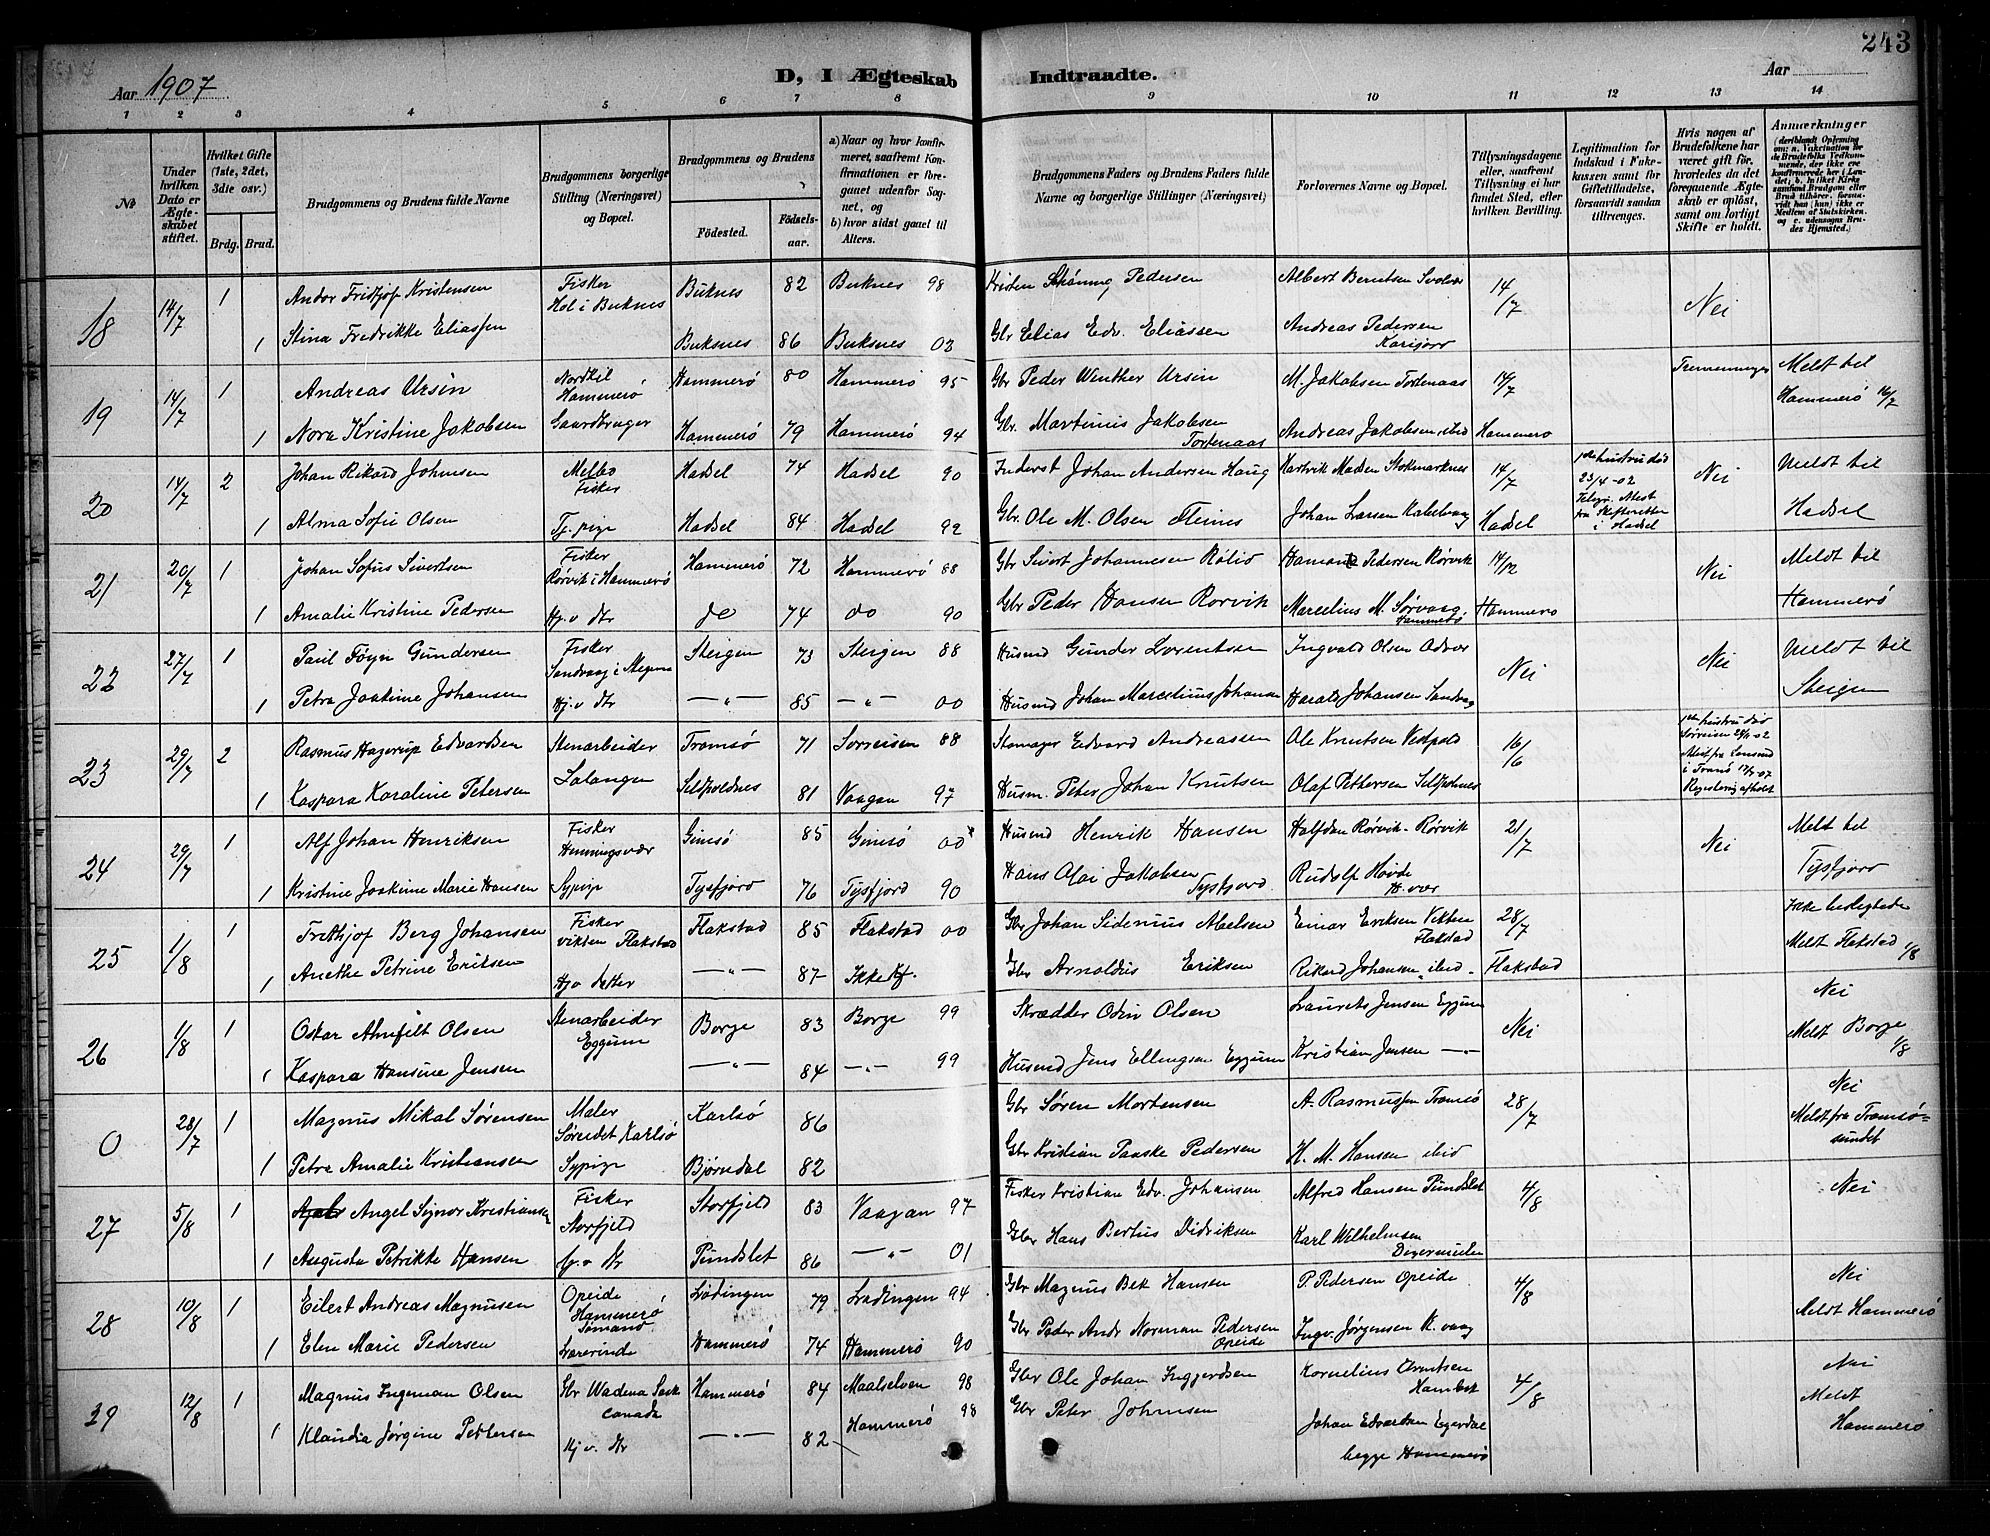 243
Aar 1907
D, I Ægteskab Indtraadte.
Aar
1 2 3 4 5 6 7 8 9 10 11 12 13 14
№
Under hvilken Dato er Ægteskabet stiftet.
Hvilket Gifte (1ste, 2det, 3die osv.)
Brdg. Brud.
Brudgommens og Brudens fulde Navne
Brudgommens borgerlige Stilling (Næringsvei) og Bopæl.
Brudgommens og Brudens
Fødested.
Fødselsaar.
a) Naar og hvor konfirmeret, saafremt Konfirmationen er foregaaet udenfor Sognet, og
b) hvor sidst gaaet til Alters.
Brudgommens Faders og Brudens Faders fulde Navne og borgerlige Stillinger (Næringsvei)
Forlovernes Navne og Bopæl.
Tillysningsdagene eller, saafremt Tillysning ei har fundet Sted, efter hvilken Bevilling.
Legitimation for Indskud i Fakrkassen samt for Giftetilladelse, forsaavidt saadan tiltrænges.
Hvis nogen af Brudefolkene har været gift før, hvorledes da det foregaaende Ægteskab er opløst, samt om lovligt Skifte er holdt.
Anmærkninger
18 14/7 1 Andor Fridtjof Kristensen Fisker Hol i Buknes Buknes 82 Buknes 98 Kristen Schøning Pedersen Albert Berntsen Svolvær 14/7 Nei
1 Stina Fredrikke Eliassen Buksnes 86 Buksnes 02 Gbr Elias Edv. Eliassen Andreas Pedersen
19 14/7 1 Andreas Ursin Nordkil Hammerø Hammerø 80 Hammerø 95 Gbr Peder Winther Ursin M. Jakobsen Tortenaas 14/7 Tremenninger Meldt til Hammerø 16/7
1 Nora Kristine Jakobsen Gaardbruger Hammerø 79 Hammerø 94 Gbr. Martinus Jakobsen Tortenaas Andreas Jakobsen, ibid Hammerø
20 14/7 2 Johan Rikard Johnsen Melbo Fisker Hadsel 74 Hadsel 90 Inderst Johan Andersen Haug Hartvik Madsen Stokmarknes 14/7 1ste hustru død 23/4-02 Telegr. Attest fra Skifteretten i Hadsel Nei Meldt til Hadsel
1 Alma Sofie Olsen Tj. pige Hadsel 84 Hadsel 92 Gbr. Ole M. Olsen Fleines Johan Larsen Kabelvaag Hadsel
21 20/7 1 Johan Sofus Sivertsen Fisker Rørvik i Hammerø Hammerø 72 Hammerø 88 Gbr Sivert Johannesen Pedersen Rørvik 14/12 Nei Meldt til Hammerø
1 Amalie Kristine Pedersen Hj. v. dtr do 74 do 90 Gbr Peder Hansen Rørvik Marcelius M. Sørvaag, Hammerø Hammerø
22 27/7 1 Paul Føyn Gundersen Fisker Sandvaag i Steigen Steigen 73 Steigen 88 Husmd Gunder Lorentsen Ingvald Olsen Nei Nei Meldt til Steigen
1 Petra Joakime Johansen Hj. v. dtr —"— 85 —"— 00 Husmd Johan Marcelius Johansen Harald Johansen Sandvaag
23 29/7 2 Rasmus Hagerup Edvardsen Stenarbeider Salangen Tromsø 71 Sørreisen 88 Skomager Edvard Andreassen Ole Knutsen Vestpold 16/6 1ste hustru død Sørreisen
1 Kaspara Karoline Petersen Sildpoldnes 81 Vaagan 97 Husm. Peter Johan Knutsen Olaf Pettersen Sildpolnes
24 29/7 1 Alf Johan Henriksen Fisker Henningsvær Gimsø 85 Gimsø 00 Husmd Henrik Hansen Halfdan Rørvik - Rørvik 21/7 Nei Meldt til Tysfjord
1 Kristine Joakime Marie Hansen Sypige Tysfjord 76 Tysfjord 90 Hans Olai Jakobsen Tysfjord Rudolf Høvde H. vær
25 1/8 1 Frithjof Berg Johansen Fisker vikten Flakstad Flakstad 85 Flakstad 00 Gbr Johan Sidenius Abelsen Einar Eriksen Vikten Flakstad 28/7 Meldt Flakstad 1/8
1 Anethe Petrine Eriksen Hj v datter —"— 87 Ikke Kf. Gbr Arnoldus Eriksen Rikard Johansen, ibid - Flakstad
26 1/8 1 Oskar Olsen Stenarbeider Eggum Borge 83 Borge 99 Skrædder Odin Olsen Laurets Jensen Eggum Nei Nei Meldt Borge 1/8
1 Kaspara Hansine Jensen —"— 84 —"— 99 Husmd Jens Ellingsen Eggum Kristian Jensen —"—
0 28/7 1 Magnus Mikal Sørensen Maler Søreidet Karlsø Karlsø 86 Gbr Søren Mortensen A. Rasmussen Tromsø 28/7 Nei Meldt fra Tromsøsundet
1 Petra Amalie Kristiansen Sypige Bjørndal 82 Gbr Kristian Paaske Pedersen H. M. Hansen ibid
27 5/8 1 Angel Signor Kristiansen Fisker Storfjeld Storfjeld 83 Vaagan 97 Fisker Kristian Edv. Johansen Alfred Hansen Pundslet 4/8 Nei
1 Augusta Petrikke Hansen Hj. v dtr Pundslet 86 —"— 01 Gbr Hans Bertus Didriksen Karl Wilhelmsen Digermulen
28 10/8 1 Eilert Andreas Magnusen Opeide Hammerø Sømand Lødingen 79 Lødingen 94 Gbr Magnus Bek Hansen P. Pedersen Opeide 4/8 Nei Meldt Hammerø
1 Elen Marie Pedersen Lærerinde Hammerø 74 Hammerø 90 Gbr Peder Andr Norman Pedersen Opeide Ingv. Jørgensen K. vaag
29 12/8 1 Magnus Ingeman Olsen Gbr Wadena Canada Hammerø 84 Maalselven 98 Gbr Ole Johan Inggjerdsen Kornelius Arntsen 4/8 Nei Meldt Hammerø
1 Klaudia Jørgine Pettersen Hj v. dtr —"— 82 Hammerø 98 Gbr Peter Johnsen Johan Edvardsen begge Hammerø